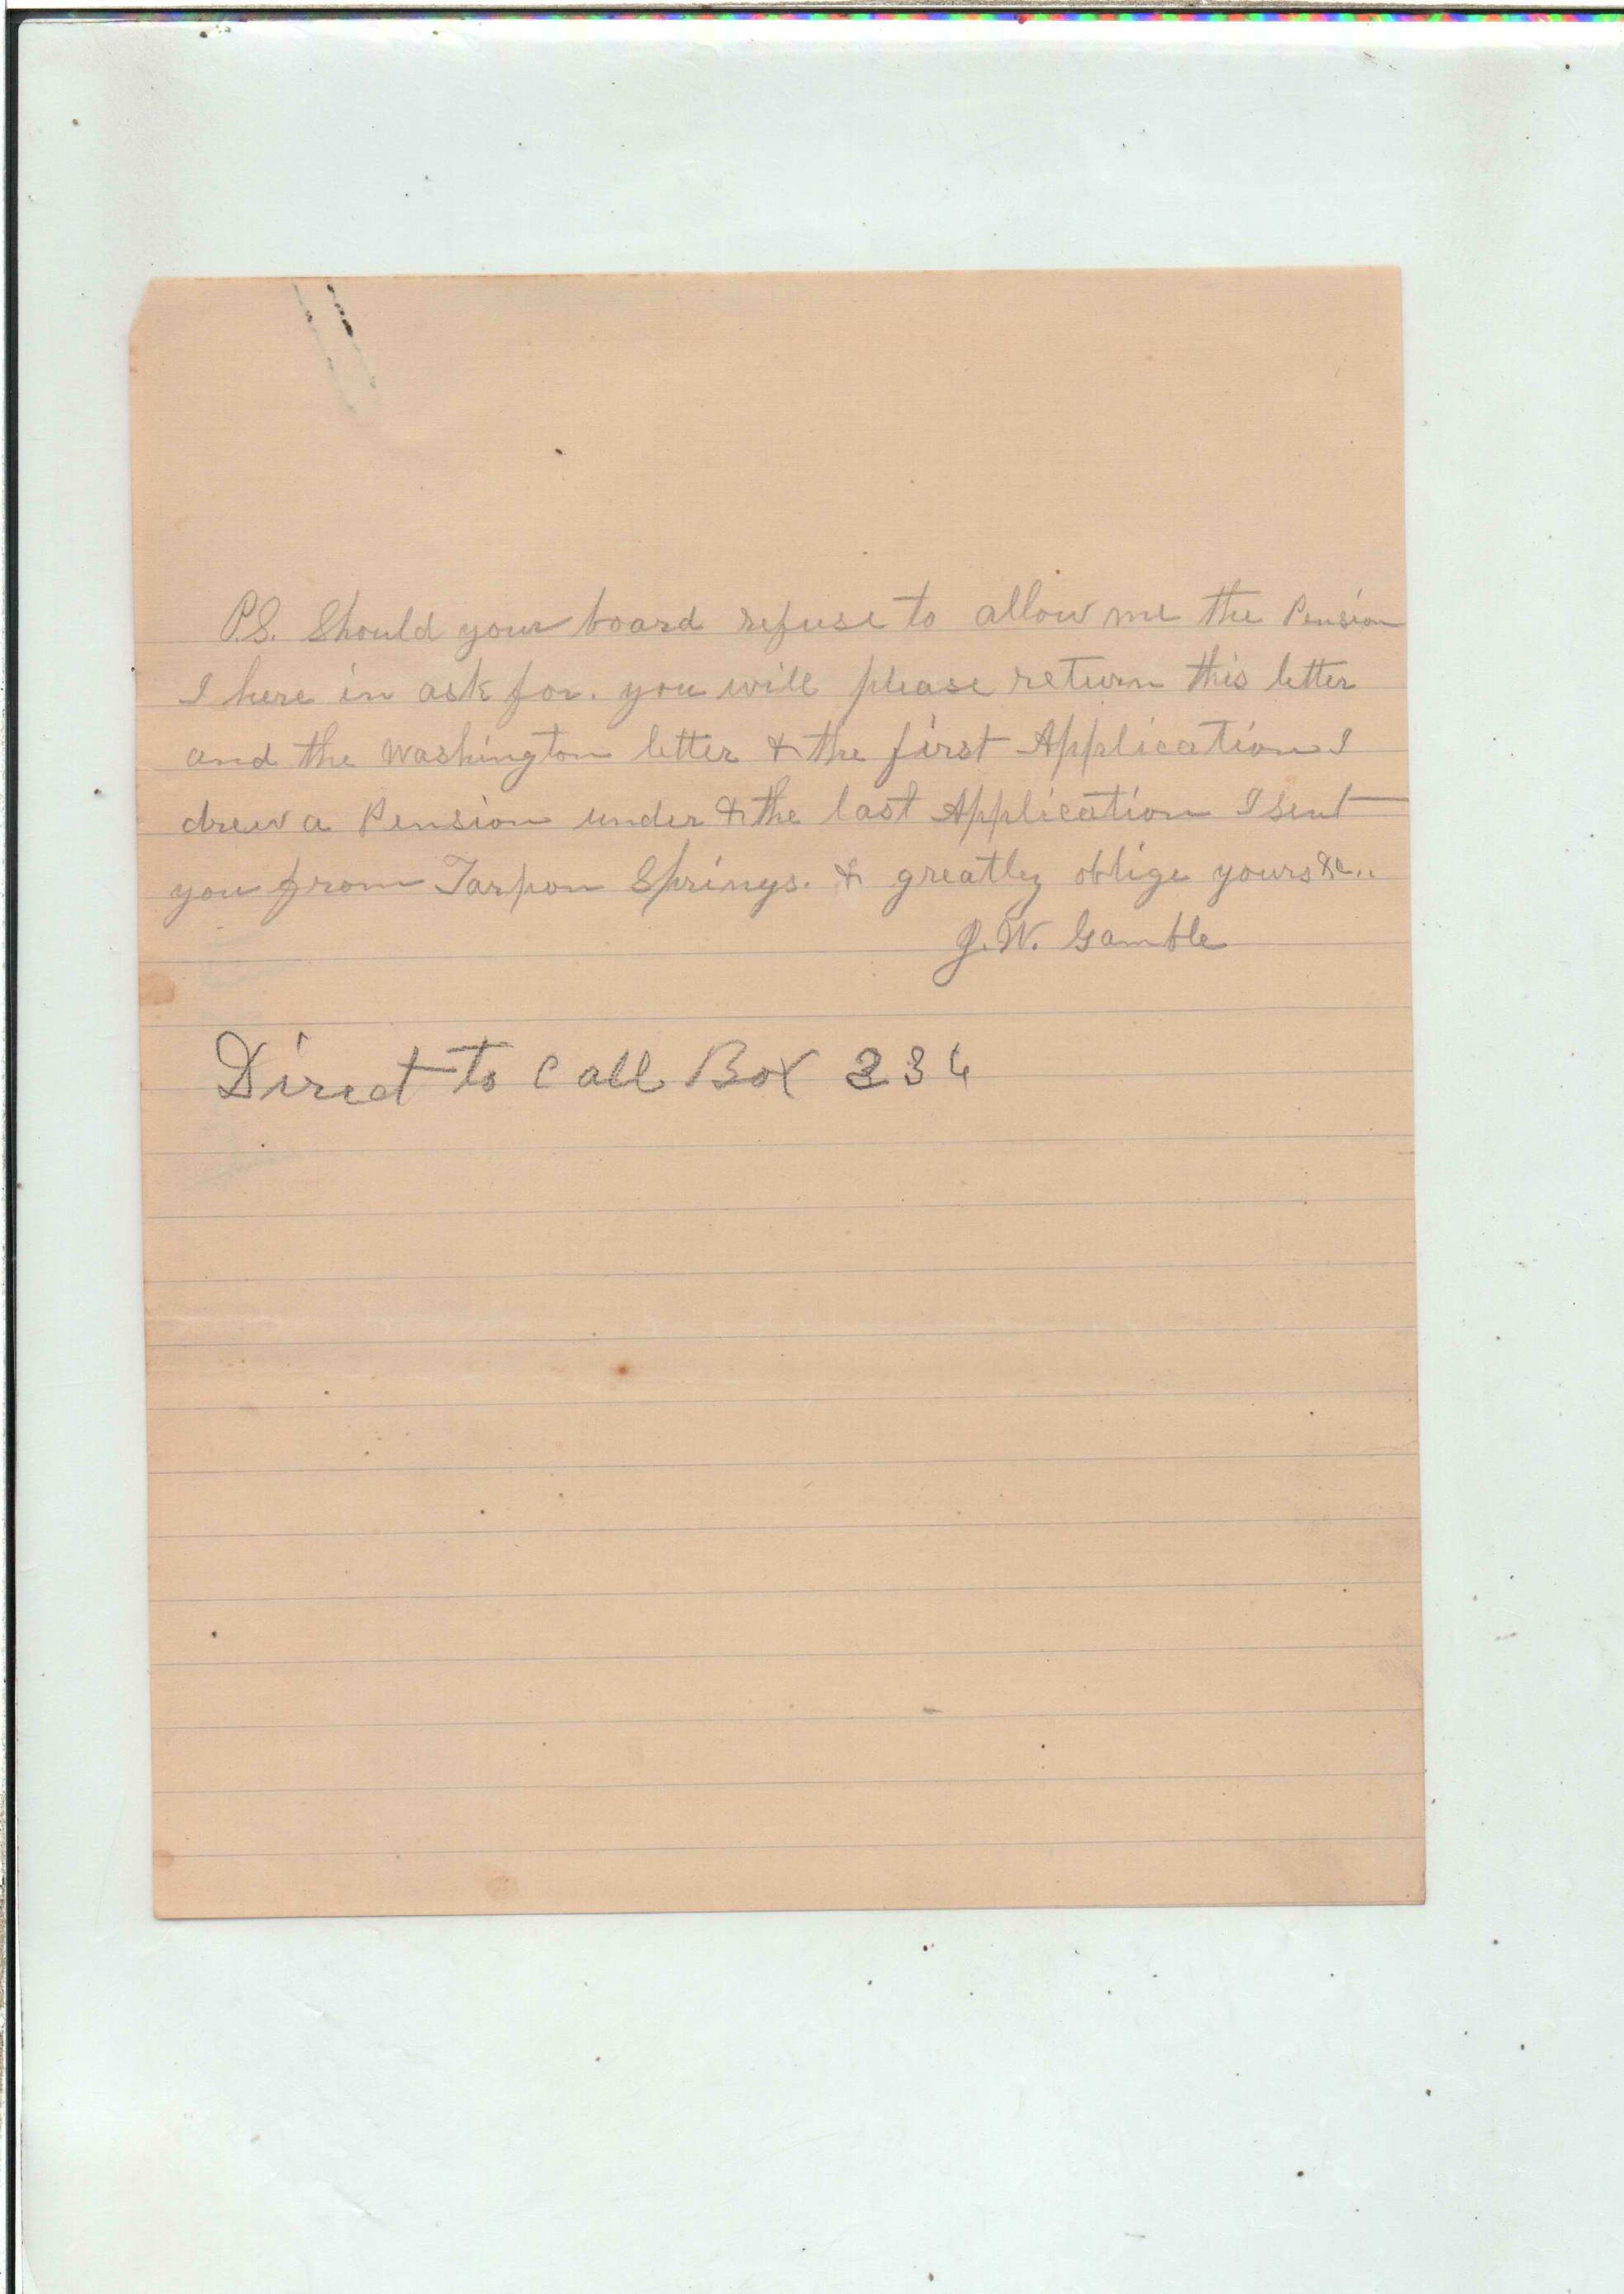 P.S. Should your board refuse to allow me the Pension
I here in ask for. you will please return this letter
and the Washington letter & the first Application I
drew a Pension under & the last Application I sent
you from Tarpon Springs. & greatly oblige yours &c..
J.W. Gamble
Direct to Call Box 334